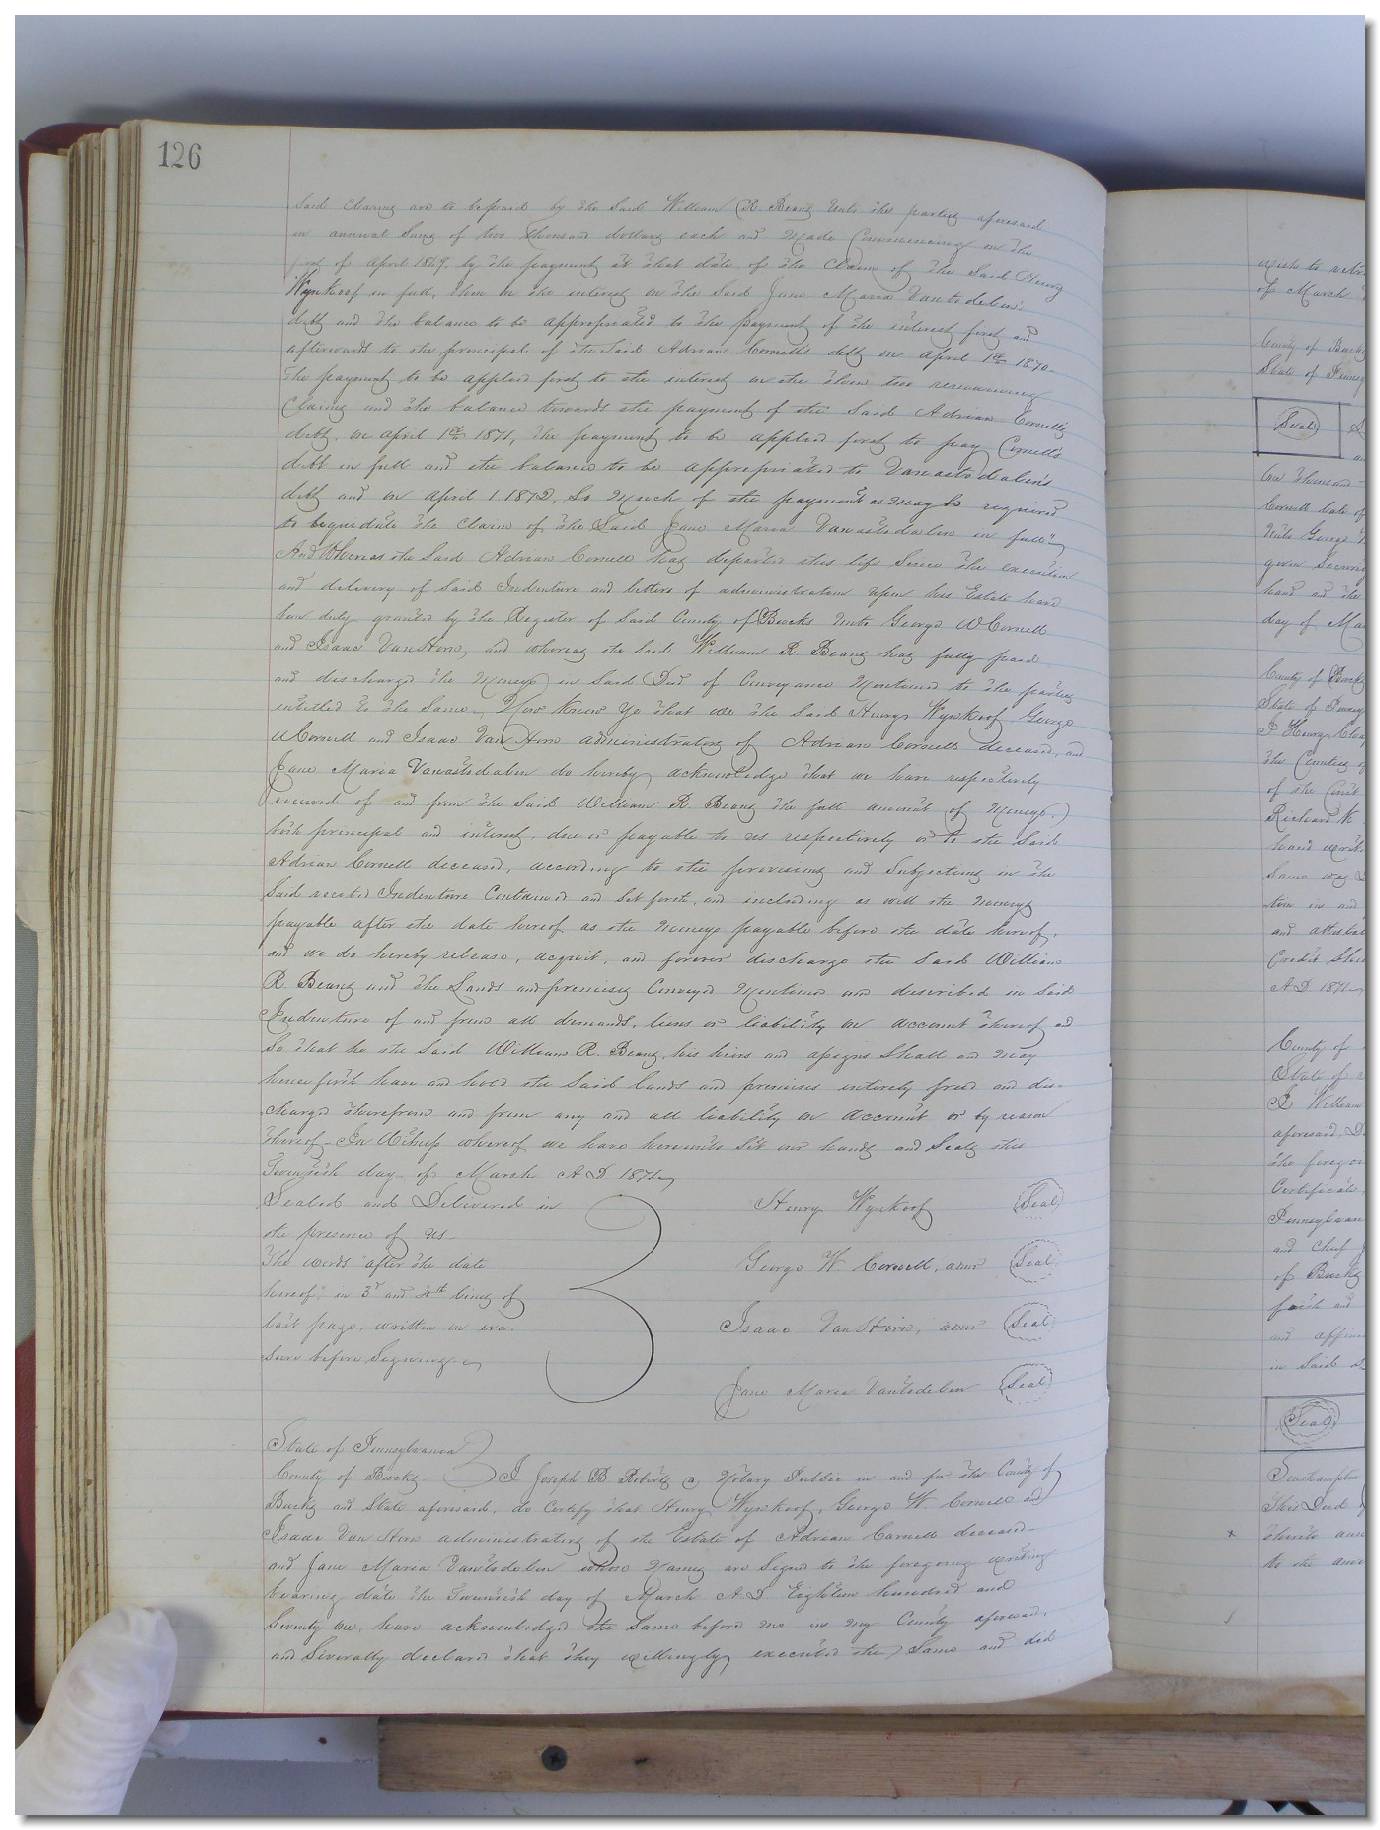 126
Said Claims are to be paid by the Said William R. Beans Unto the parties aforesaid
in annual Sums of two thousand dollars each and Made Commencing on the
first of April 1869, by the payment at that date of the Claim of the Said Henry
Wynkoof in full, then on the interest on the Said Jane Maria Vantsdelen's
debt and the balance to be appropriated to the payment of the interest first and
afterwards to the principal of the Said Adrian Cornell's debt on April 1st 1870.
The payment to be applied first to the interest on the then two remaining
Claims and the balance towards the payment of the Said Adrian Cornell's
debt, on April 1st 1871, the payment to be applied first to pay Cornell's
debt in full and the balance to be appropriated to Vanartsdalen's
debt and on April 1. 1872. So Much of the payment as may be required
to liquidate the Claim of the Said Jane Maria Vanartsdalen in full"
And Whereas the Said Adrian Cornell has departed this life Since the execution
and delivery of Said Indenture and letters of administration upon his Estate have
been duly granted by the Register of Said County of Bucks Unto George W Cornell
and Isaac VanHorn, and whereas the Said William R. Beans has fully paid
and discharged the Moneys in Said Deed of Conveyance Mentioned to the parties
entitled to the Same, Now Know Ye that we the Said Henry Wynkoof George
W Cornell and Isaac Van Horn administrators of Adrian Cornell deceased, and
Jane Maria Vanartsdalen do hereby acknowledge that we have respectively
received of and from the Said William R. Beans the full amount of Moneys,
both principal and interest, due or payable to us respectively or to the Said
Adrian Cornell deceased, according to the provisions and Subjections in the
Said recited Indenture Contained and Set forth, and including as well the Moneys
payable after the date hereof as the Moneys payable before the date hereof,
and we do hereby release, acquit, and forever discharge the Said William
R. Beans and the Lands and premises Conveyed Mentioned and described in Said
Indenture of and from all demands, liens or liability on account thereof and
So that he the Said William R. Beans, his heirs and assigns Shall and may
hence forth have and hold the Said lands and premises entirely freed and dis-
charged therefrom and from any and all liability on account or by reason
thereof - In Witness whereof we have hereunto Set our hands and Seals this
Twentieth day of March A D 1871
Sealed and Delivered in
the presence of us
The words "after the date
hereof" in 3d and 4th lines of
last page, written on era-
sure before Signing
Henry Wynkoof Seal
George W. Cornell, admr Seal
Isaac VanHorn, admr Seal
Jane Maria Vantsdelen Seal
State of Pennsylvania
County of Bucks I Joseph B Roberts a Notary Public in and for the County of
Bucks and State aforesaid, do Certify that Henry Wynkoof, George W. Cornell and
Isaac Van Horn administrators of the Estate of Adrian Cornell deceased
and Jane Maria Vantsdelen whose Names are Signed to the foregoing writing
bearing date the Twentieth day of March A D Eighteen hundred and
Seventy one, have acknowledged the Same before me in my County aforesaid,
and Severally declared that they willingly executed the Same and did
of March
County of Bucks
Seal
One thousand
Cornell late of
Unto George
hand and the
day of Ma
County of Bucks
I Henry
the Counties of
of the Court
Richard K
and
A D 1871
County of
State of
I William
aforesaid, D
the forego
Certificate,
Pennsylvan
and Chief
of Bucks
faith and
and affix
in Said
Seal
Southampton
This Deed
x
to the